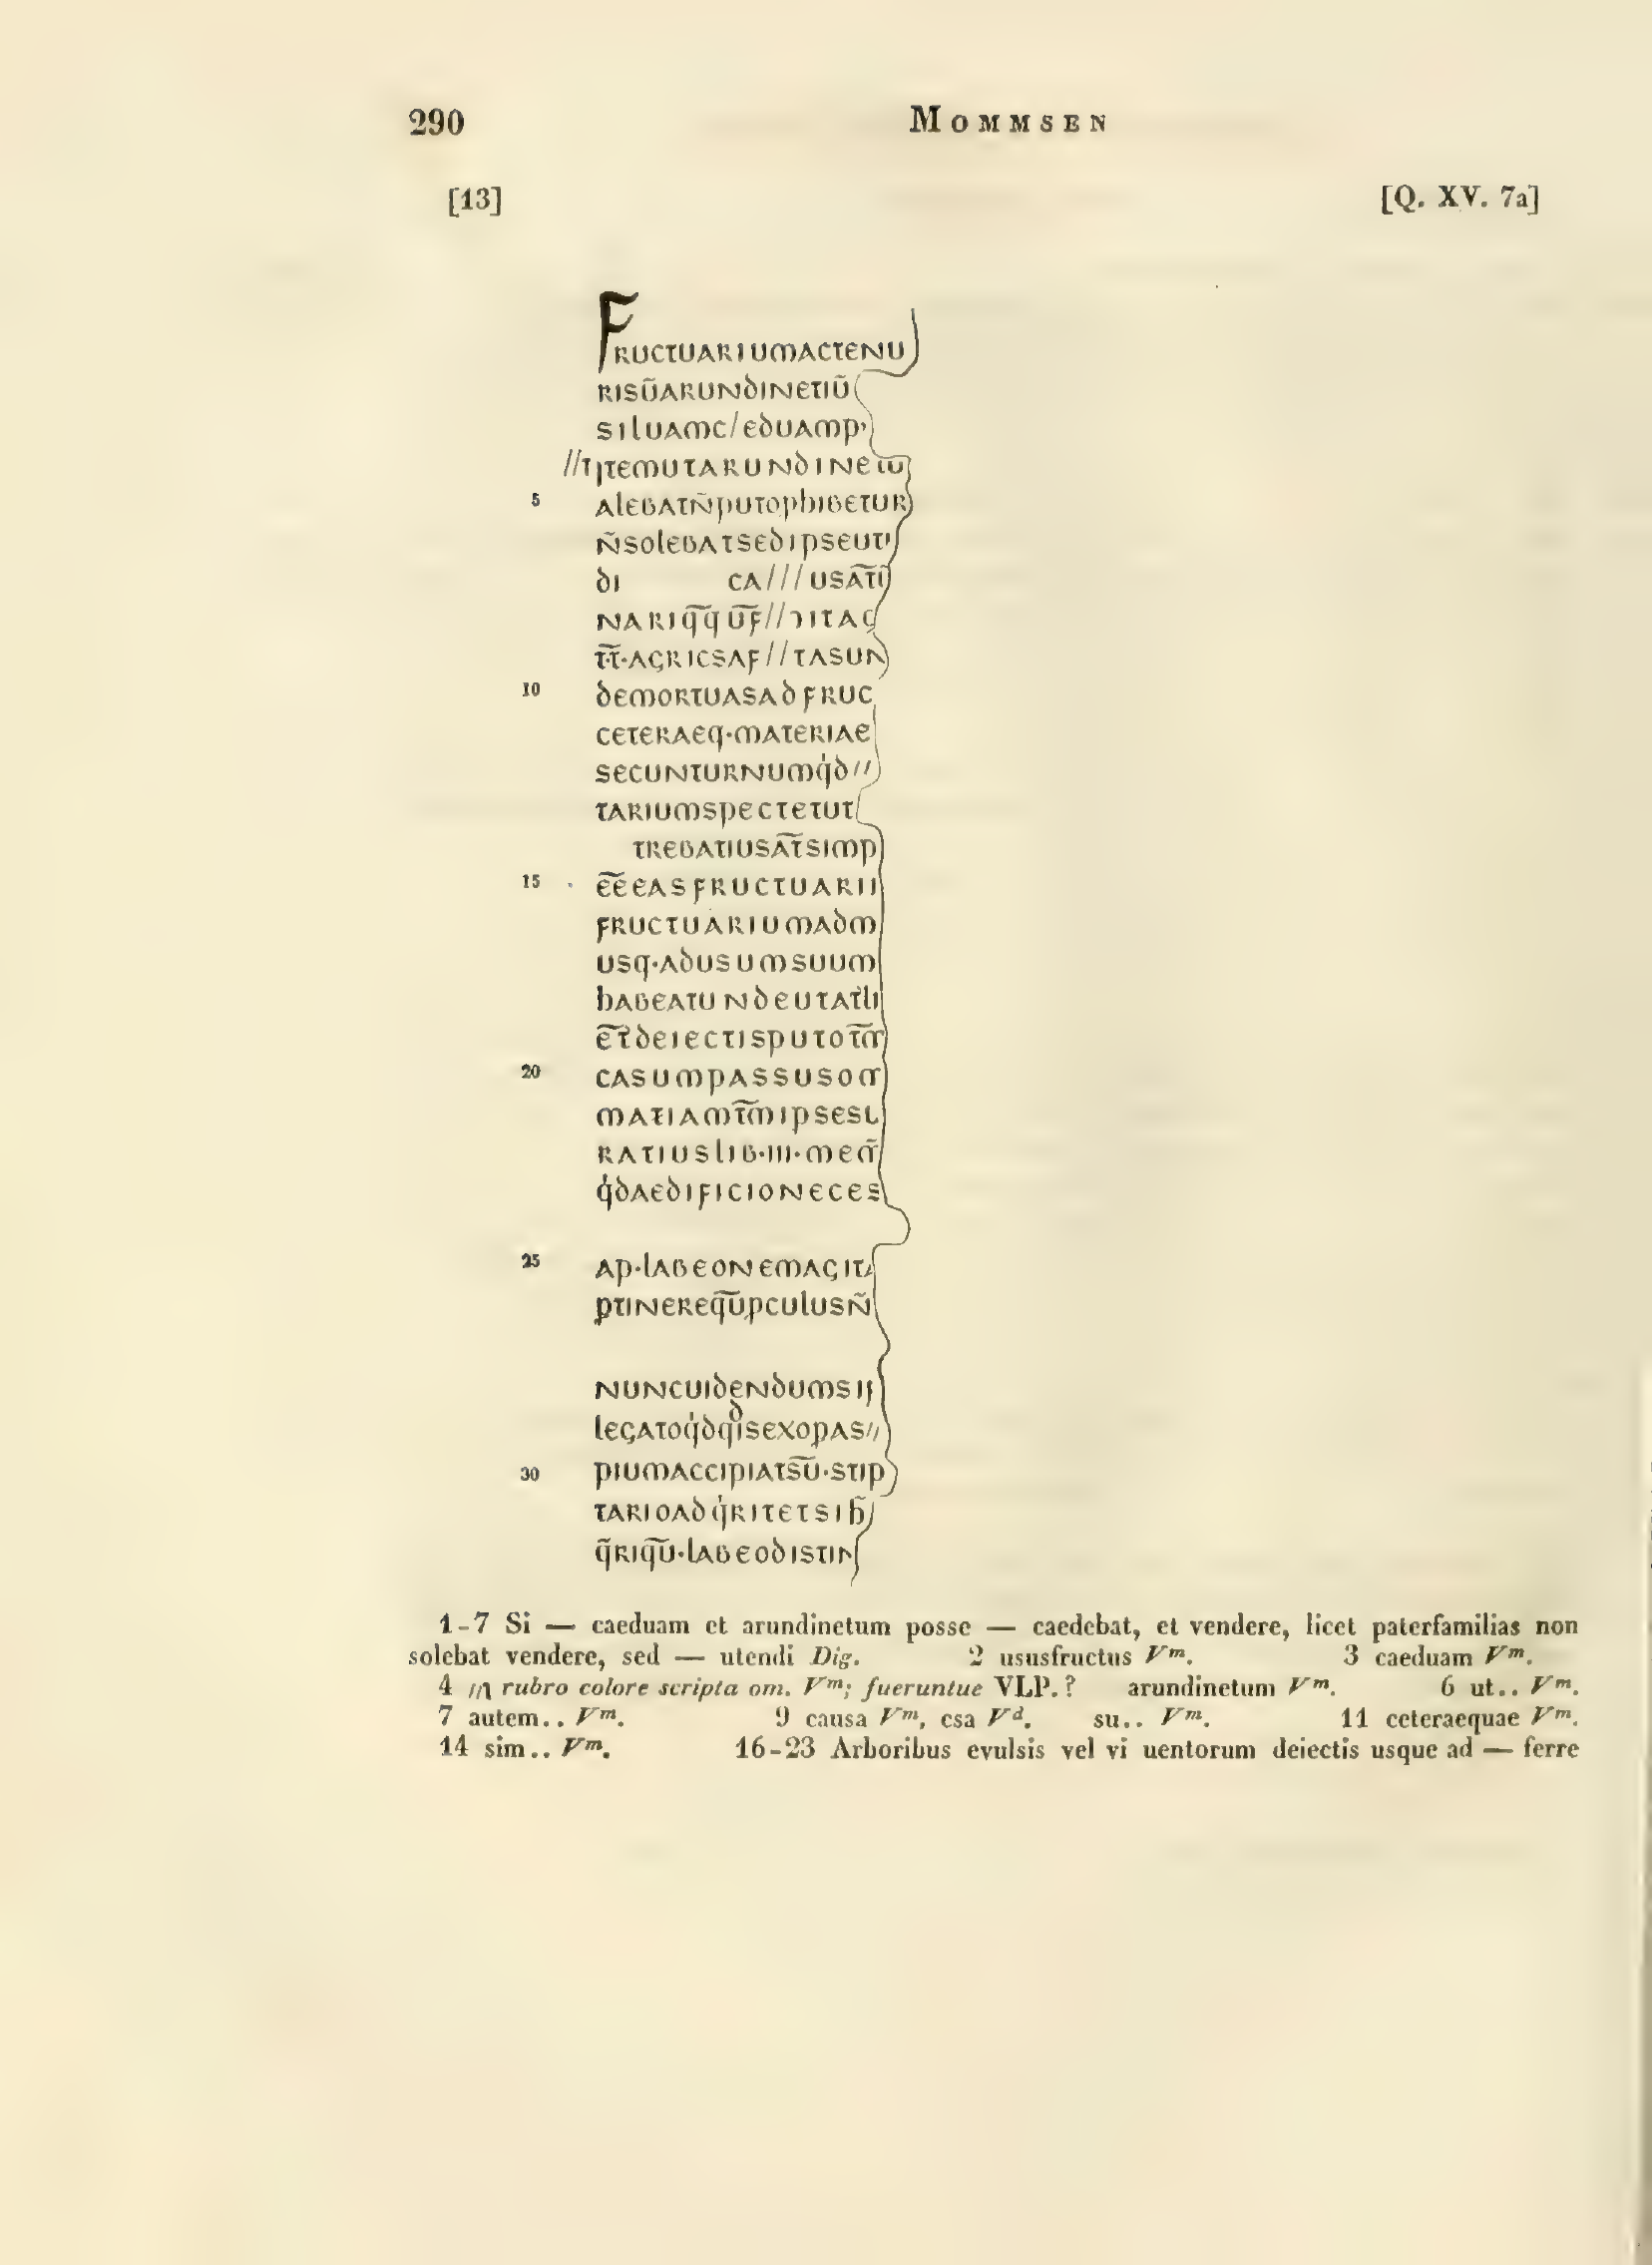 290 MOMMSEN
[13] [Q. XV. 7a]
FRUCTUARIUMACTENU
RISŪARUNDINETIŪ
SILUAMC/EDUAMP
//TITEMUTARUNDINETU
5 ALEBATN̄PUTOPHIBETUR
N̄SOLEBATSEDIPSEUTI
DI CA///USAT̄U
NARIq̄q̄ŪF̄//ITAQ
T̄T̄·AGRICSAF//TASUN
10 DEMORTUASADFRUC
CETERAEQ·MATERIAE
SECUNTURNUMQD//
TARIUMSPECTETUT
TREBATIUSAT̄SIMP
15 ĒĒEASFRUCTUARII
FRUCTUARIUMADM
USQ·ADUSUMSUUM
HABEATUNDEUTATLI
DEIECTISPUTO
20 CASUMPASSUSOM
MATIAMT̄M̄IPSESU
RATIUSLIB·III·MEM̄
QDAEDIFICIONECES
25 AP·LABEONEMAGITA
PTINEREQ̄ŪPCULUSN̄
NUNCUIDENDUMSIF
LEGATOQDQDISEXOPAS//
30 PIUMACCIPIATS̄Ū·STIP
TARIOADQRITETSIH̄
Q̄RIQ̄Ū·LABEODISTIN
1-7 Si — caeduam et arundinetum posse — caedebat, et vendere, licet paterfamilias non
solebat vendere, sed — utendi Dig. 2 ususfructus Vm. 3 caeduam Vm.
4 rubro colore scripta om. Vm; fueruntue VLP.? arundinetum Vm. 6 ut.. Vm.
7 autem.. Vm. 9 causa Vm, csa Vd. su.. Vm. 11 ceteraequae Vm.
14 sim.. Vm. 16-23 Arboribus evulsis vel vi uentorum deiectis usque ad — ferre